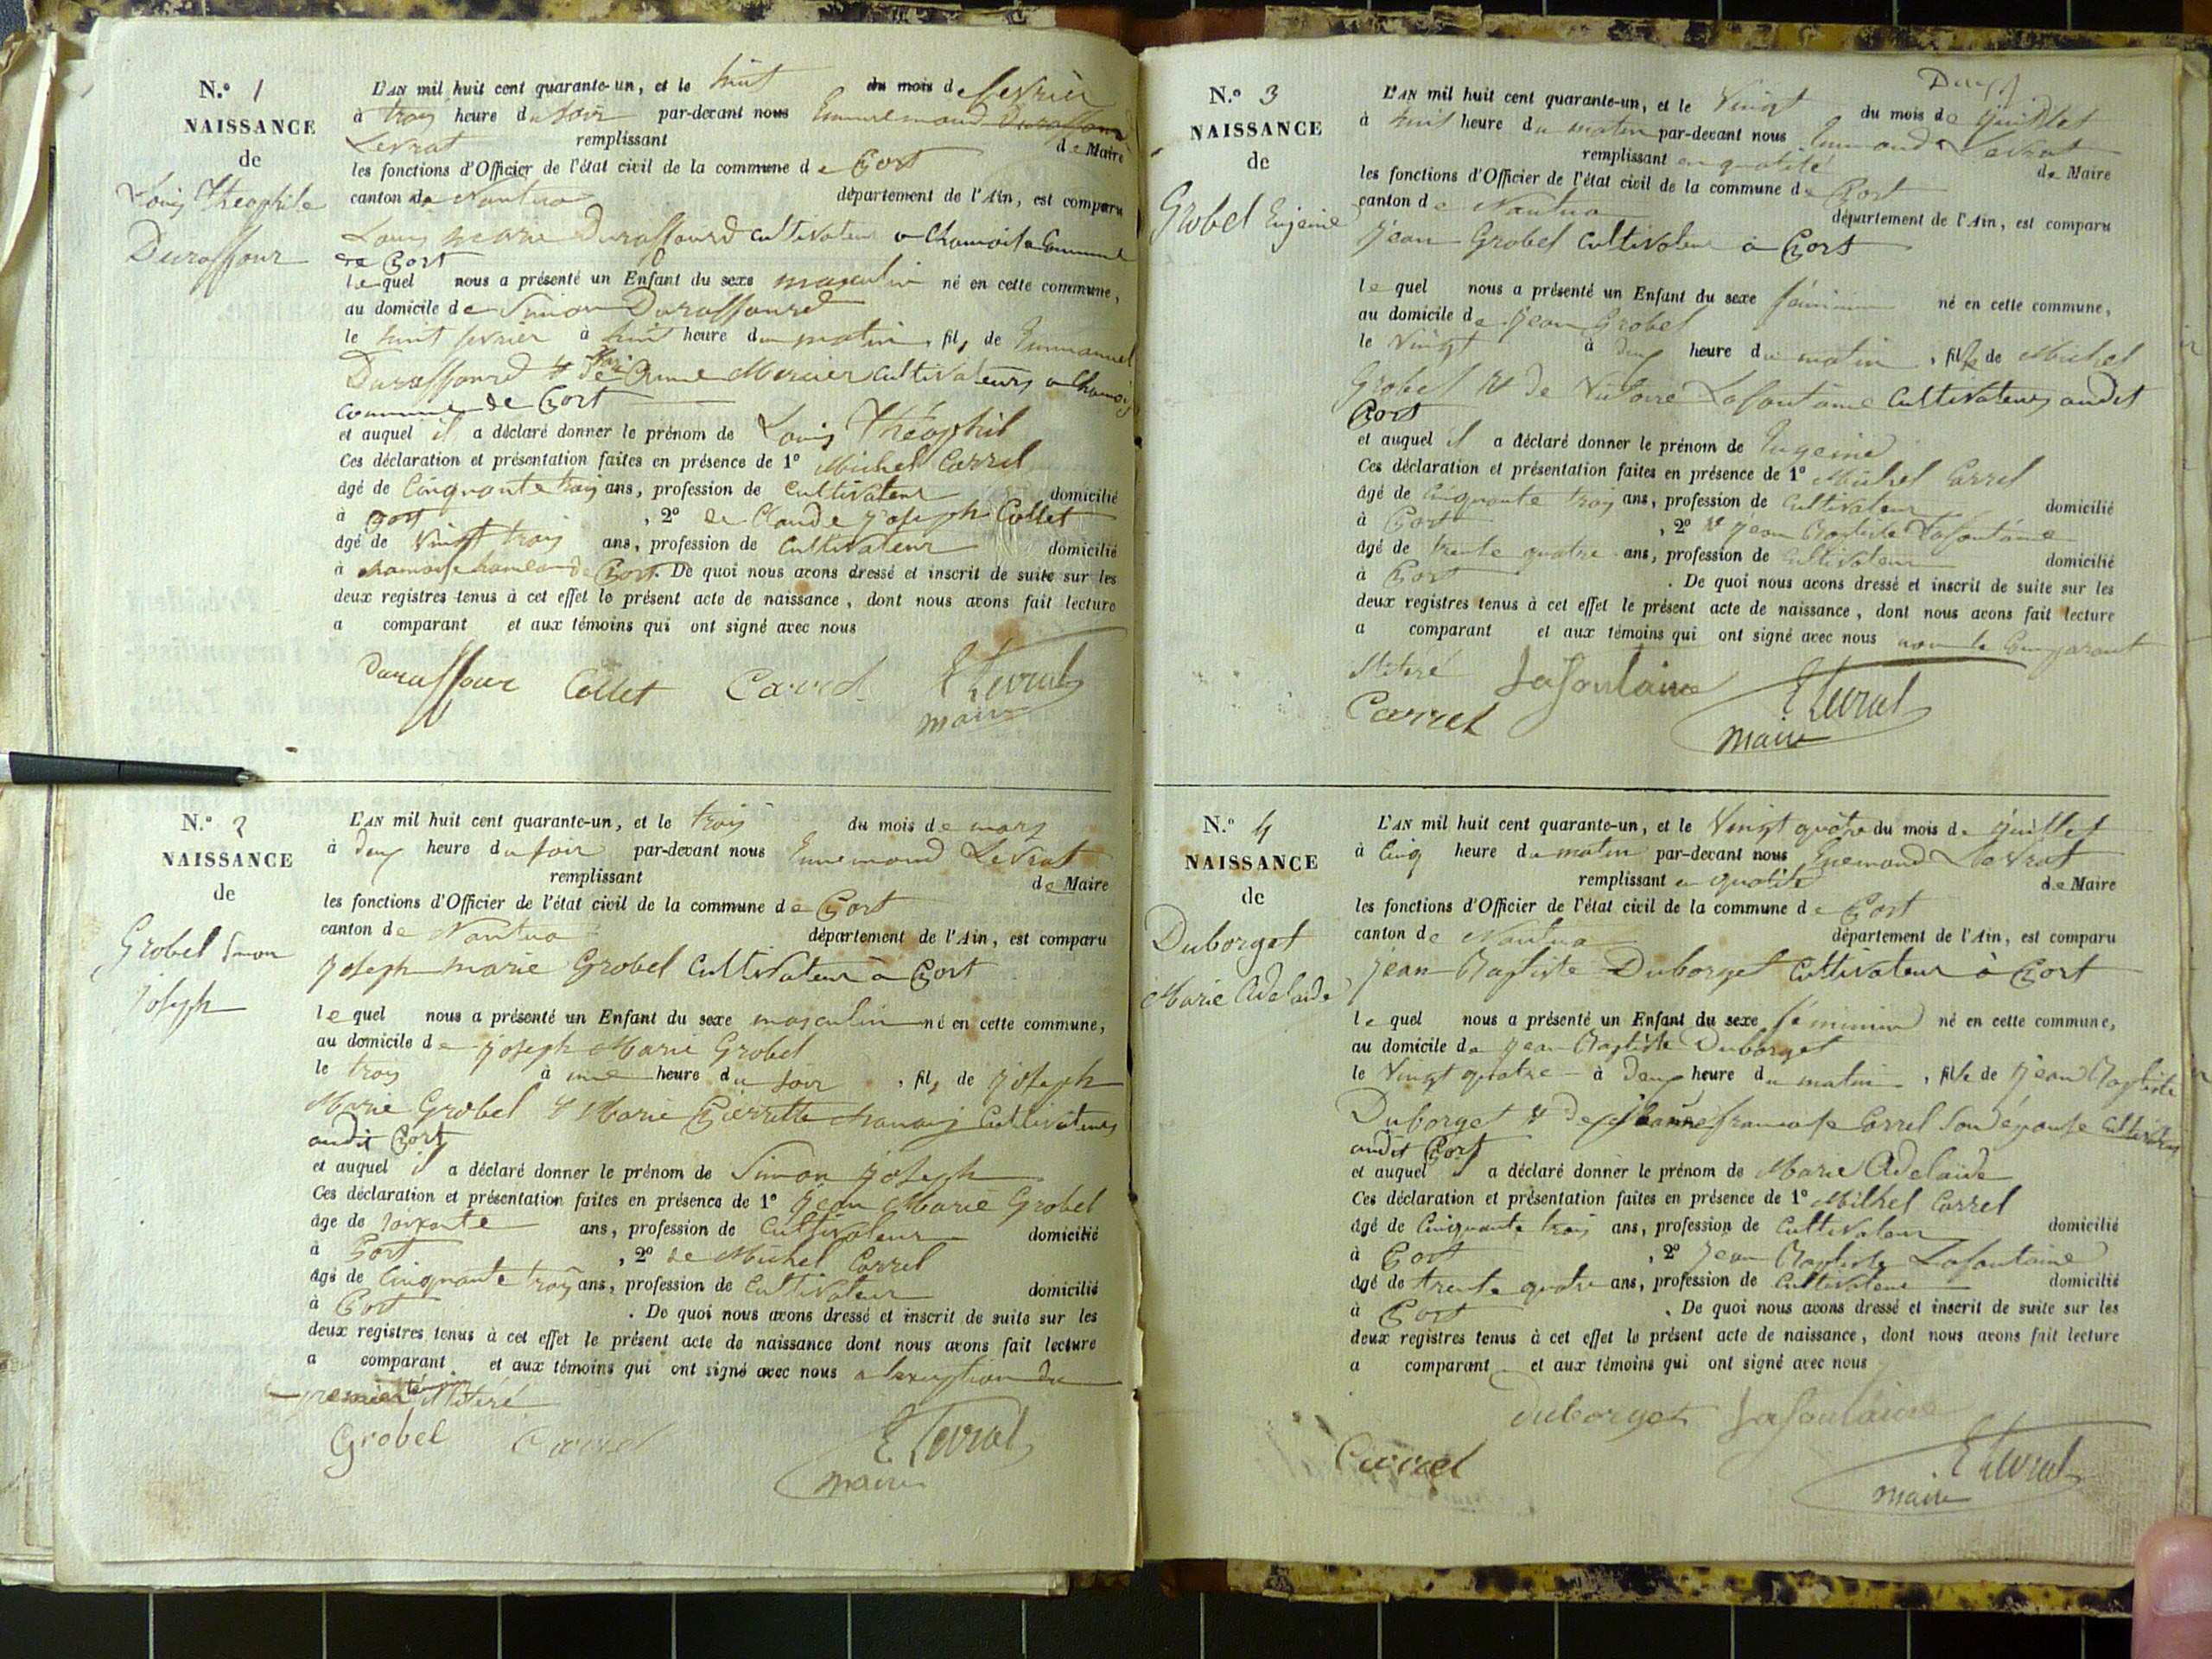 N.° 1
NAISSANCE
de
Louis Théophile
Duraffour
L'AN mil huit cent quarante-un, et le huit du mois de fevrier
à trois heure du soir par-devant nous Ennemond Duraffourd
Levrat remplissant de Maire
les fonctions d'Officier de l'état civil de la commune de Port
canton de Nantua département de l'Ain, est comparu
Louis marie Duraffourd cultivateur a Chamoise Commune
de Port
lequel nous a présenté un Enfant du sexe masculin né en cette commune,
au domicile de Simon Duraffourd
le huit fevrier à huit heure du matin, fils de Emmanuel
Duraffourd & de Anne Mercier cultivateurs a
commune de Port
et auquel il a déclaré donner le prénom de Louis Théophil
Ces déclaration et présentation faites en présence de 1° Michel Carrel
âgé de Cinquante trois ans, profession de Cultivateur domicilié
à Port, 2° de Claude joseph Collet
âgé de Vingt trois ans, profession de Cultivateur domicilié
à chamoise hameau de Port. De quoi nous avons dressé et inscrit de suite sur les
deux registres tenus à cet effet le présent acte de naissance, dont nous avons fait lecture
a comparant et aux témoins qui ont signé avec nous
Duraffour Collet Carrel E Levrat
maire
N.° 2
NAISSANCE
de
Grobel Simon
joseph
L'AN mil huit cent quarante-un, et le trois du mois de mars
à deux heure du soir par-devant nous Ennemond Levrat
remplissant de Maire
les fonctions d'Officier de l'état civil de la commune de Port
canton de Nantua département de l'Ain, est comparu
joseph marie Grobel Cultivateur à Port
lequel nous a présenté un Enfant du sexe masculin né en cette commune,
au domicile de joseph Marie Grobel
le trois à une heure du soir, fils de joseph
Marie Grobel & Marie Pierrette Cultivateurs
audit Port
et auquel il a déclaré donner le prénom de Simon joseph
Ces déclaration et présentation faites en présence de 1° jean Marie Grobel
âgé de soixante ans, profession de Cultivateur domicilié
à Port, 2° de Michel Carrel
âgé de Cinquante trois ans, profession de Cultivateur domicilié
à Port. De quoi nous avons dressé et inscrit de suite sur les
deux registres tenus à cet effet le présent acte de naissance dont nous avons fait lecture
a comparant et aux témoins qui ont signé avec nous a lexeption du
premier témoin illitéré
Grobel Carrel E Levrat
maire
Deux
N.° 3
NAISSANCE
de
Grobel Eugeine
L'AN mil huit cent quarante-un, et le Vingt du mois de juillet
à huit heure du matin par-devant nous Ennemond Levrat
remplissant en qualité de Maire
les fonctions d'Officier de l'état civil de la commune de Port
canton de Nantua département de l'Ain, est comparu
jean Grobel Cultivateur à Port
lequel nous a présenté un Enfant du sexe féminin né en cette commune,
au domicile de jean Grobel
le Vingt à deux heure du matin, fille de Michel
Grobel & de Victoire Lafontaine Cultivateurs audit
Port
et auquel il a déclaré donner le prénom de Eugeine
Ces déclaration et présentation faites en présence de 1° Michel Carrel
âgé de Cinquante trois ans, profession de Cultivateur domicilié
à Port, 2° & jean Baptiste Lafontaine
âgé de trente quatre ans, profession de Cultivateur domicilié
à Port. De quoi nous avons dressé et inscrit de suite sur les
deux registres tenus à cet effet le présent acte de naissance, dont nous avons fait lecture
a comparant et aux témoins qui ont signé avec nous non le Comparant
illitéré Lafontaine E Levrat
Carrel maire
N.° 4
NAISSANCE
de
Duborget
Marie Adelaide
L'AN mil huit cent quarante-un, et le Vingt quatre du mois de juillet
à Cinq heure du matin par-devant nous Enemond Levrat
remplissant en qualité de Maire
les fonctions d'Officier de l'état civil de la commune de Port
canton de Nantua département de l'Ain, est comparu
jean Baptiste Duborget Cultivateur à Port
lequel nous a présenté un Enfant du sexe féminin né en cette commune,
au domicile de jean Baptiste Duborget
le Vingt quatre à deux heure du matin, fille de jean Baptiste
Duborget & de jeanne francoise Carrel Son épouse Cultivateurs
audit Port
et auquel il a déclaré donner le prénom de Marie Adelaide
Ces déclaration et présentation faites en présence de 1° Michel Carrel
âgé de Cinquante trois ans, profession de Cultivateur domicilié
à Port, 2° jean Baptiste Lafontaine
âgé de trente quatre ans, profession de Cultivateur domicilié
à Port. De quoi nous avons dressé et inscrit de suite sur les
deux registres tenus à cet effet le présent acte de naissance, dont nous avons fait lecture
a comparant et aux témoins qui ont signé avec nous
duborget Lafontaine
Carrel E Levrat
maire